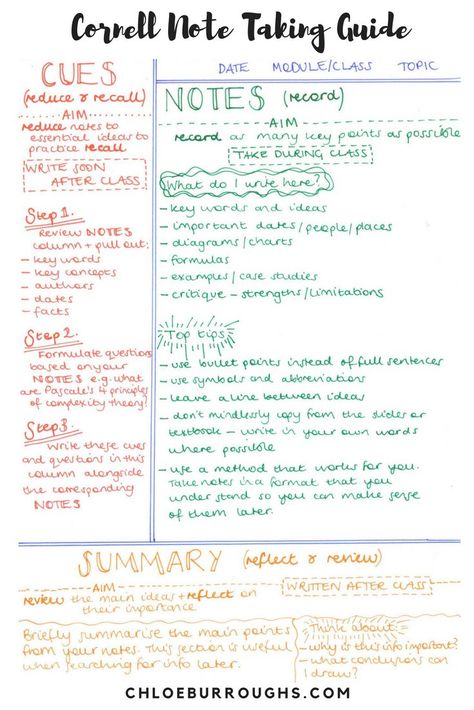 Cornell Note Taking Guide
CUES
(reduce & recall)
AIM
reduce notes to
essential ideas to
practice recall
WRITE SOON
AFTER CLASS
Step 1.
Review NOTES
column + pull out:
- key words
- key concepts
- authors
- dates
- facts
Step 2.
Formulate questions
based on your
NOTES e.g. what
are Pascale's 4 principles
of complexity theory?
Step 3.
Write these cues
and questions in this
column alongside
the corresponding
NOTES
DATE MODULE/CLASS TOPIC
NOTES (record)
AIM
record as many key points as possible
TAKE DURING CLASS
What do I write here?
- key words and ideas
- important dates/people/places
- diagrams/charts
- formulas
- examples/case studies
- critique - strengths/limitations
Top tips
- use bullet points instead of full sentences
- use symbols and abbreviations
- leave a line between ideas
- don't mindlessly copy from the slides or
textbook - write in your own words
where possible
- use a method that works for you.
Take notes in a format that you
understand so you can make sense
of them later.
SUMMARY (reflect & review)
AIM
review the main ideas + reflect on
their importance
WRITTEN AFTER CLASS
Briefly summarise the main points
from your notes. This section is useful
when searching for info later.
Think about:
- why is this info important?
- what conclusions can
I draw?
CHLOEBURROUGHS.COM